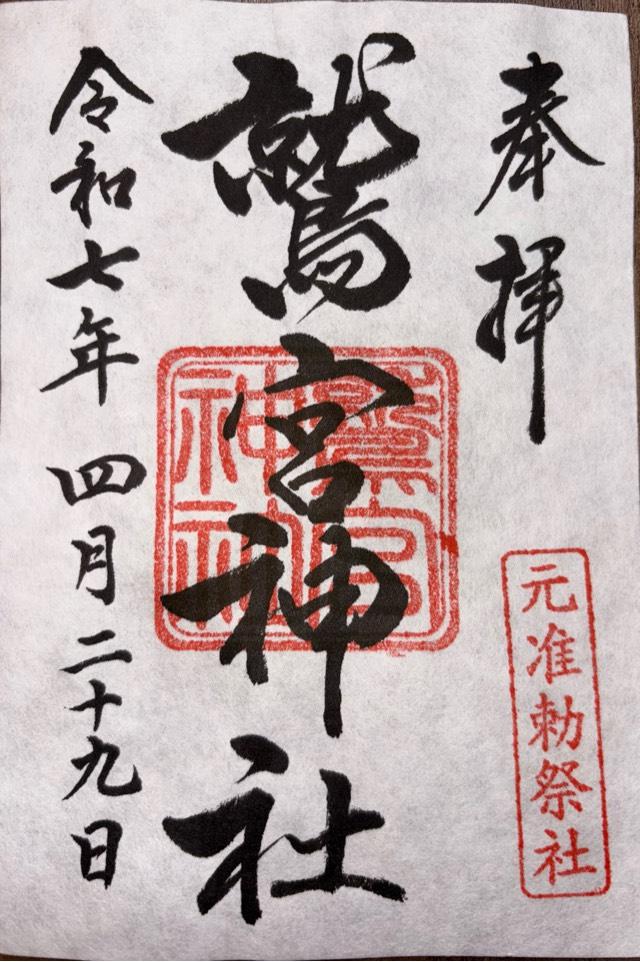 奉拝
元准勅祭社
鷲宮神社
鷲宮
神社
令和七年 四月二十九日